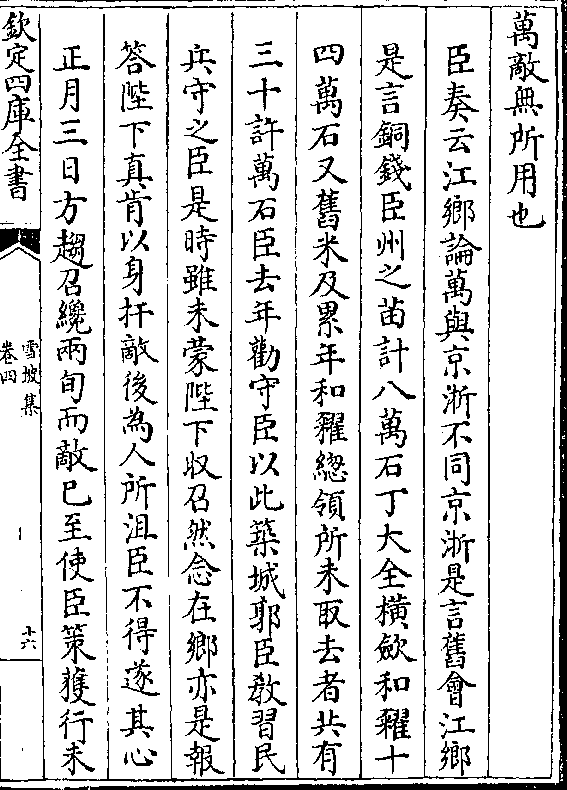 萬敵無所用也
臣奏云江鄉論萬與京浙不同京浙是言舊會江鄉
是言銅錢臣州之苗計八萬石丁大全横歛和糴十
四萬石又舊米及累年和糴總領所未取去者共有
三十許萬石臣去年勸守臣以此築城郭臣教習民
兵守之臣是時雖未蒙陛下收召然念在鄉亦是報
答陛下真肯以身扞敵後為人所沮臣不得遂其心
正月三日方趨召纔兩旬而敵已至使臣策獲行未
欽定四庫全書
雪坡集
卷四
十六